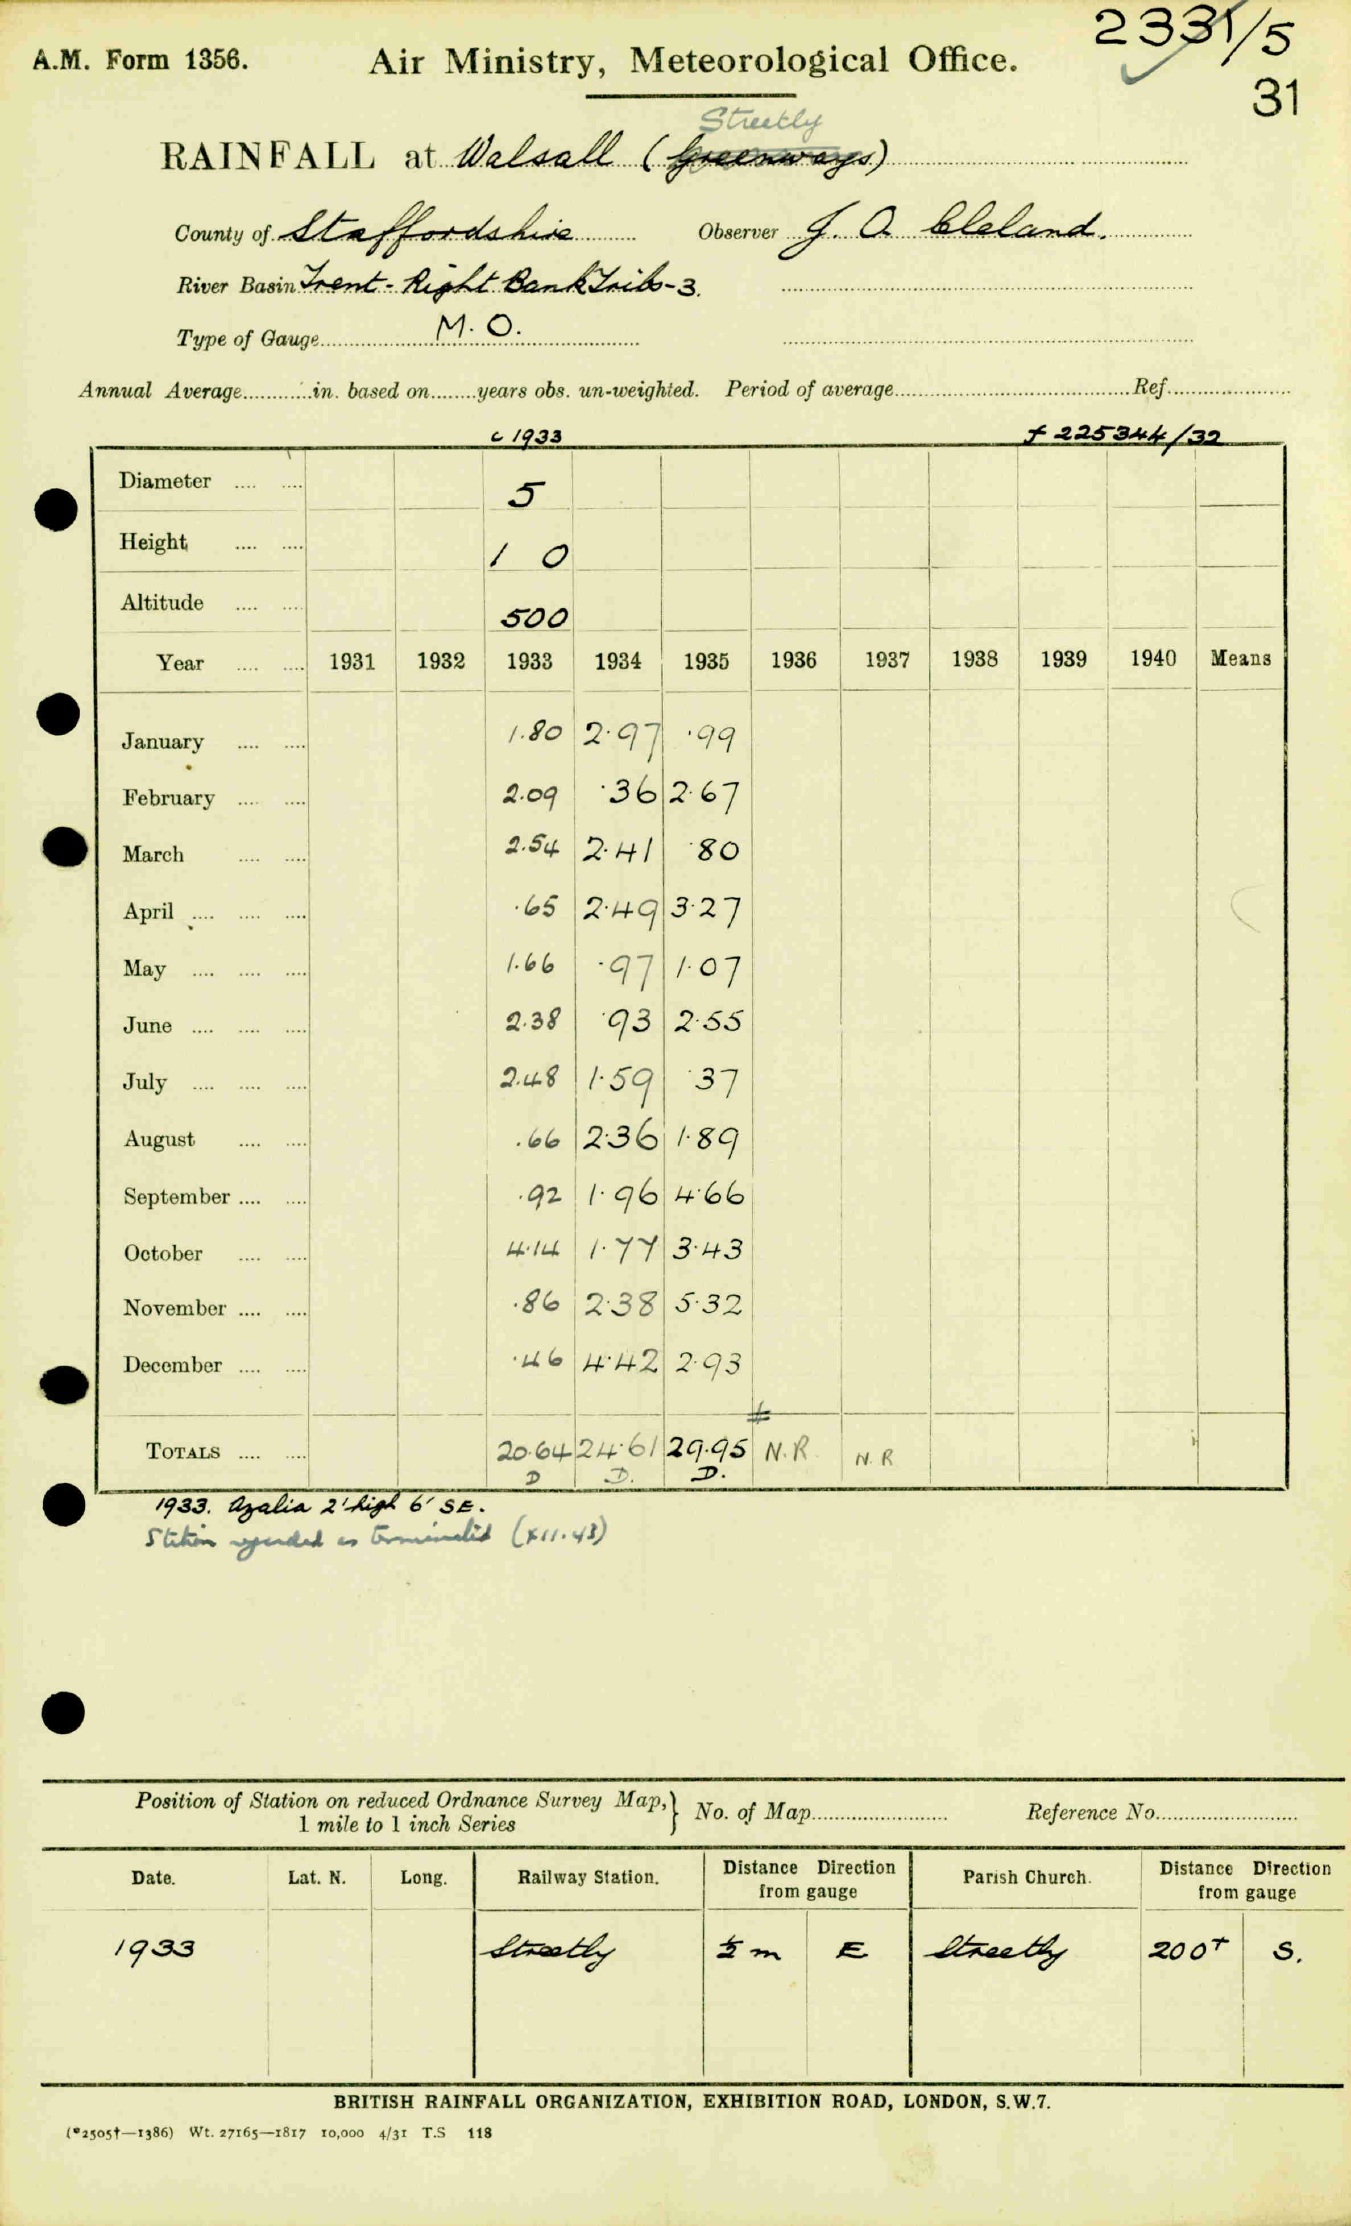 2331/5
A.M. Form 1356. Air Ministry, Meteorological Office.
31
Streetly
RAINFALL at Walsall (Greenways)
County of Staffordshire Observer J. A. Cleland.
River Basin Trent - Right Bank Tribs - 3.
Type of Gauge M. O.
Annual Average in. based on years obs. un-weighted. Period of average Ref.
c 1933 f 225344/32
Diameter 5
Height 1 0
Altitude 500
Year 1931 1932 1933 1934 1935 1936 1937 1938 1939 1940 Means
January 1.80 2.97 .99
February 2.09 .36 2.67
March 2.54 2.41 .80
April .65 2.49 3.27
May 1.66 .97 1.07
June 2.38 .93 2.55
July 2.48 1.59 .37
August .66 2.36 1.89
September .92 1.96 4.66
October 4.14 1.77 3.43
November .86 2.38 5.32
December .46 4.42 2.93
TOTALS 20.64 24.61 29.95 N.R. N.R
D D. D.
1933. Azalia 2' high 6' SE.
Station regarded as terminated (XII.43)
Position of Station on reduced Ordnance Survey Map, } No. of Map Reference No.
1 mile to 1 inch Series
Date. Lat. N. Long. Railway Station. Distance Direction from gauge Parish Church. Distance Direction from gauge
1933 Streetly ½ m E Streetly 200+ S.
BRITISH RAINFALL ORGANIZATION, EXHIBITION ROAD, LONDON, S.W.7.
(*2505†—1386) Wt. 27165—1817 10,000 4/31 T.S 118